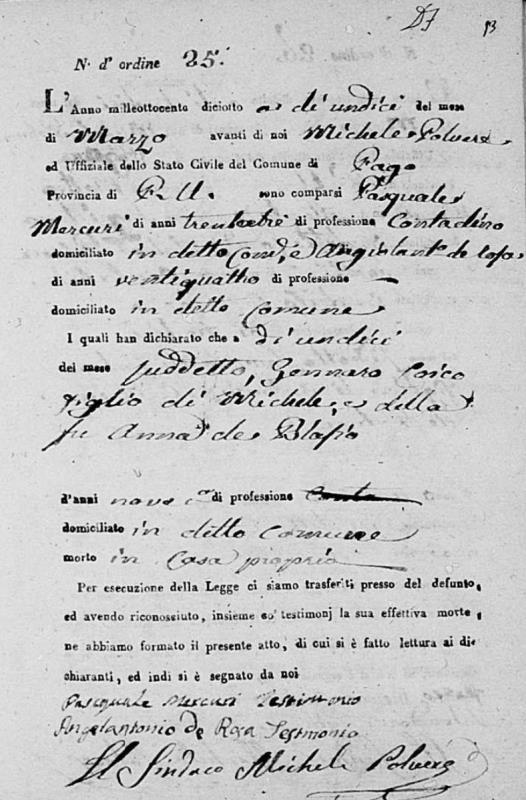 D7 13
N. d' ordine 25.
L'Anno milleottocento diciotto a dì undici del mese
di Marzo avanti di noi Michele Polvere
ed Uffiziale dello Stato Civile del Comune di Pago
Provincia di P. U. sono comparsi Pasquale
Mercuri di anni trentatrè di professione Contadino
domiciliato in detto Com.e, e Angiolant.o de Rosa
di anni ventiquattro di professione —
domiciliato in detto Comune
I quali han dichiarato che a dì undici
del mese suddetto, Gennaro Corco
figlio di Michele, e della
fu Anna de Blasio
d'anni nove di professione
domiciliato in detto Comune
morto in Casa propria
Per esecuzione della Legge ci siamo trasferiti presso del defunto,
ed avendo riconosciuto, insieme co' testimonj la sua effettiva morte,
ne abbiamo formato il presente atto, di cui si è fatto lettura ai di-
chiaranti, ed indi si è segnato da noi
Pasquale Mercuri Testimonio
Angelantonio de Rosa Testimonio
Il Sindaco Michele Polvere